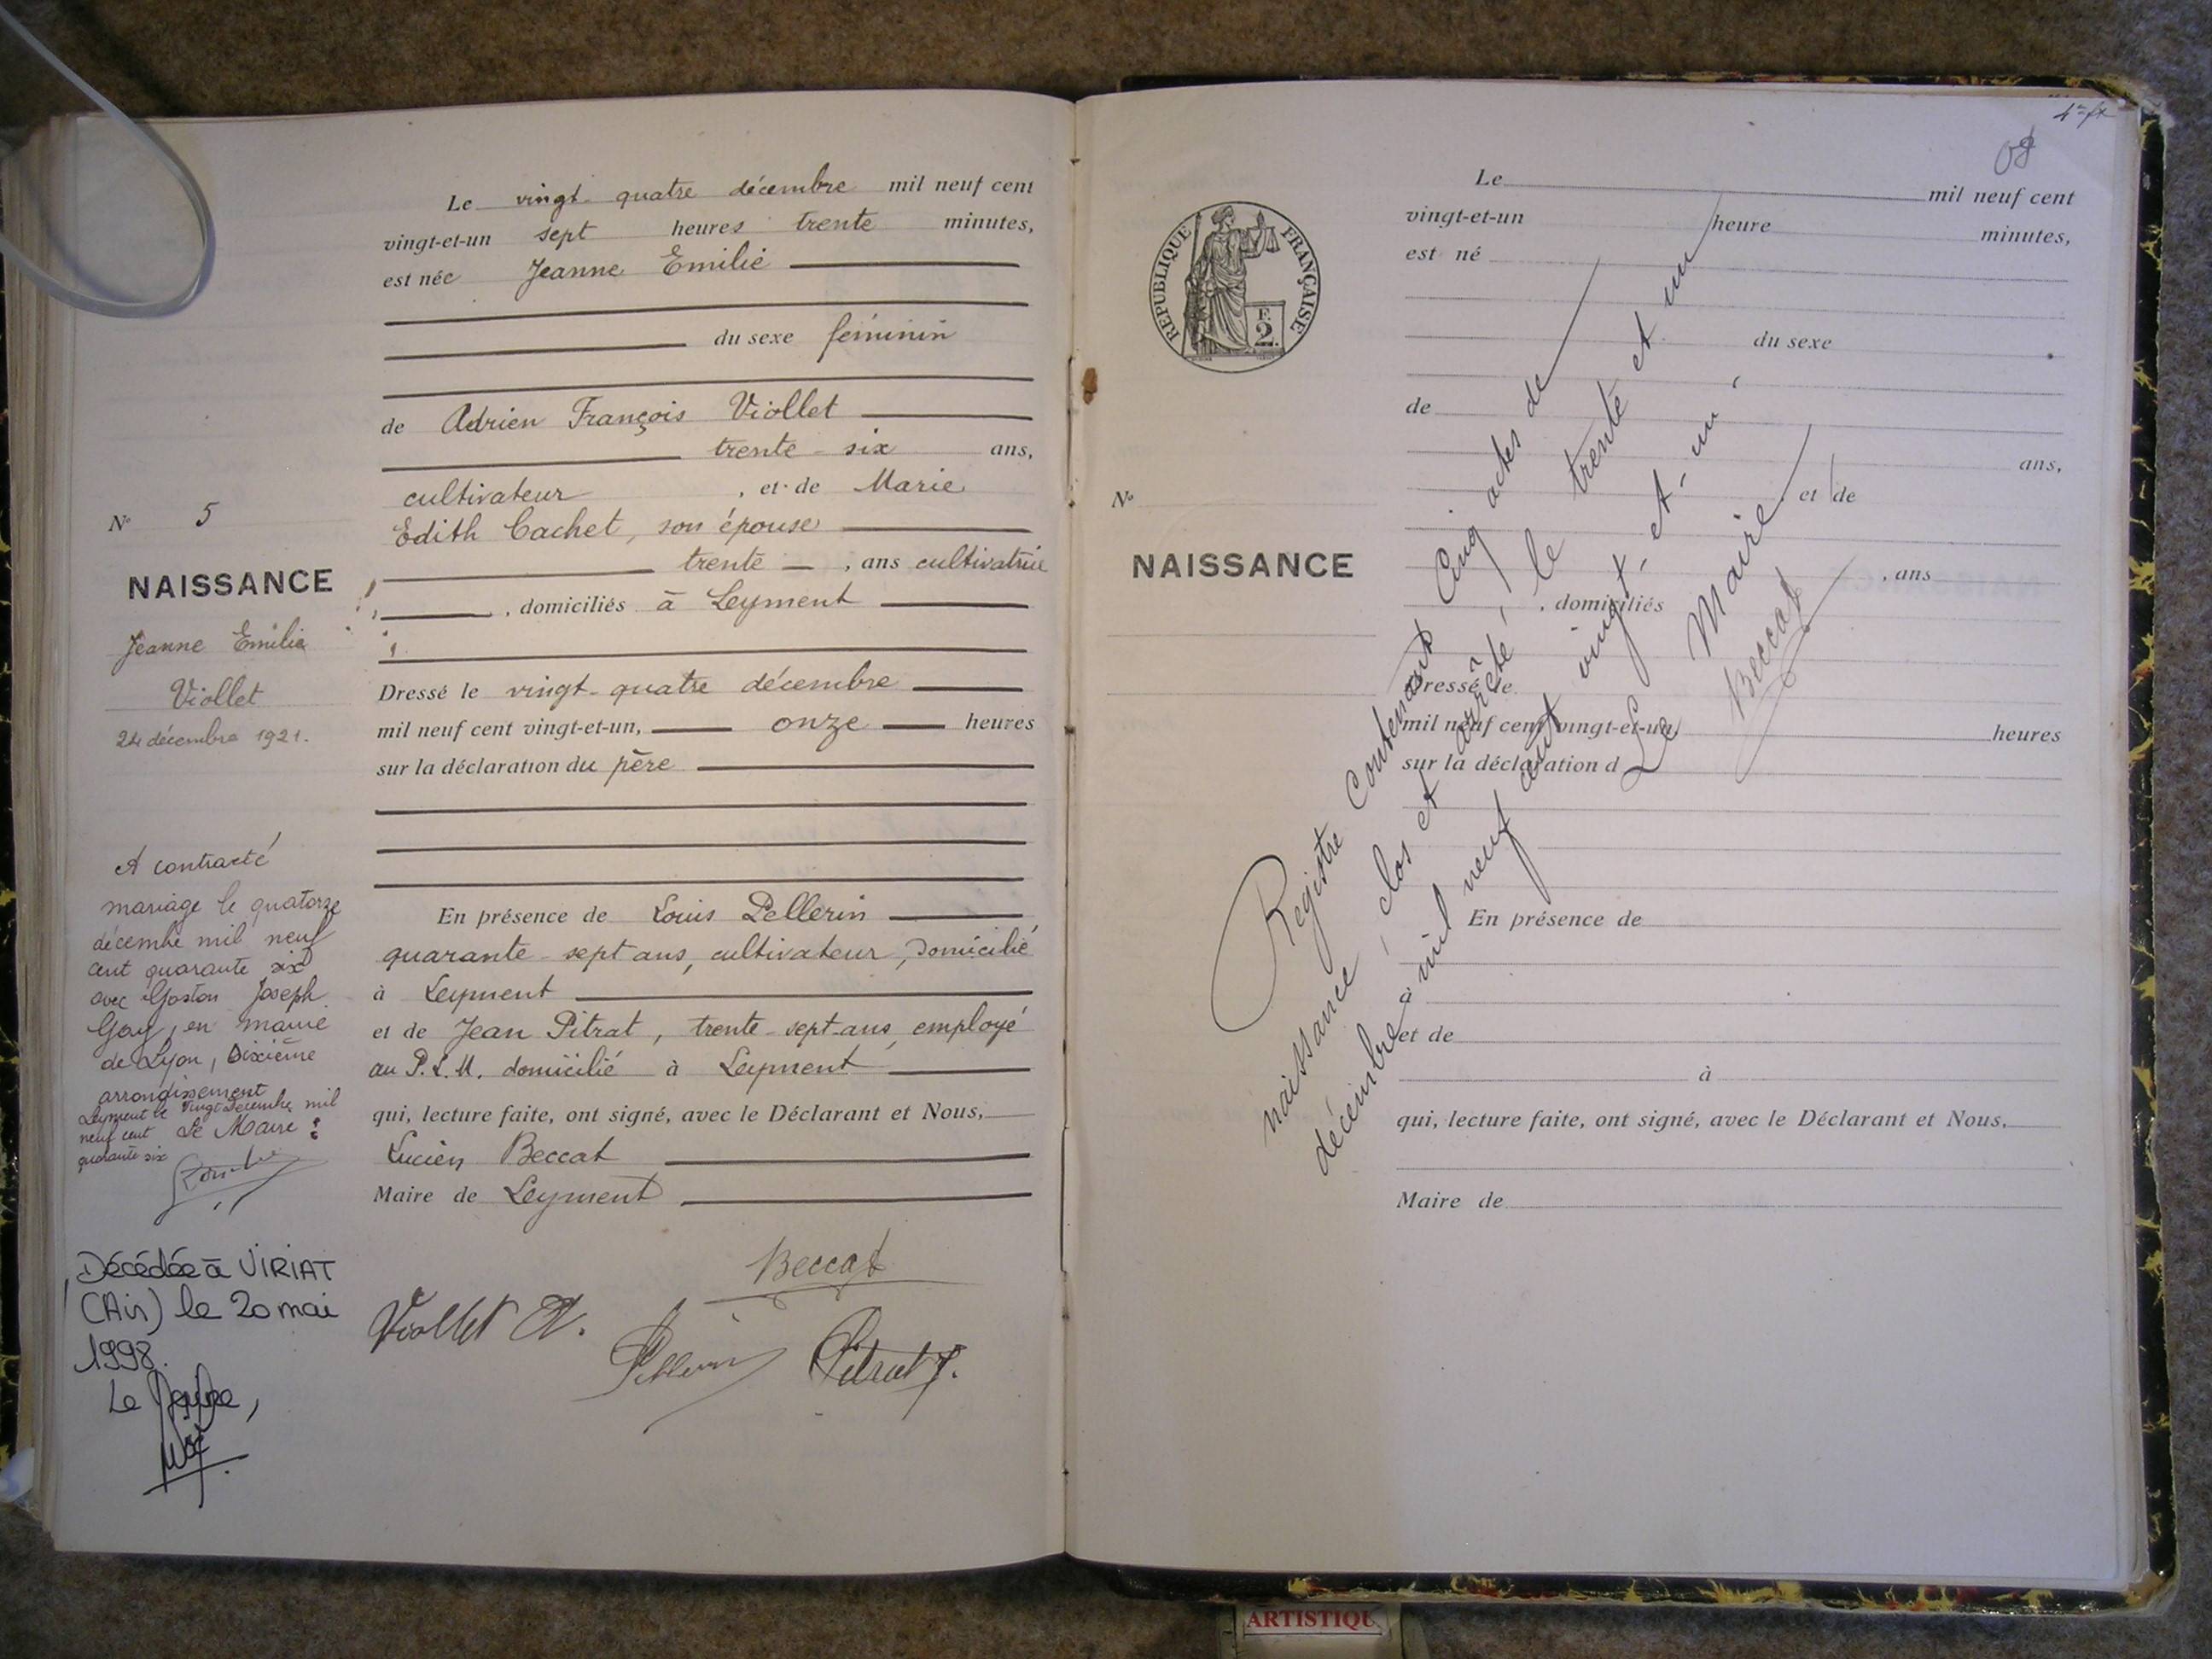 Le vingt-quatre décembre mil neuf cent
vingt-et-un sept heures trente minutes,
est née Jeanne Emilie
du sexe féminin
de Adrien François Viollet
trente-six ans,
cultivateur , et de Marie
Edith Cachet, son épouse
trente , ans cultivatrice
, domiciliés à Leyment
Dressé le vingt-quatre décembre
mil neuf cent vingt-et-un, onze heures
sur la déclaration du père
En présence de Louis Pellerin
quarante-sept ans, cultivateur, domicilié
à Leyment
et de Jean Pitrat, trente-sept ans, employé
au P.L.M. domicilié à Leyment
qui, lecture faite, ont signé, avec le Déclarant et Nous,
Lucien Beccat
Maire de Leyment
Beccat
Viollet A.
Pellerin
Pitrat J.
N° 5
NAISSANCE
Jeanne Emilie
Viollet
24 décembre 1921.
A contracté
mariage le quatorze
décembre mil neuf
cent quarante six
avec Gaston Joseph
Goy, en mairie
de Lyon, Sixième
arrondissement
Leyment le vingt décembre mil
neuf cent Le Maire :
quarante six
Décédée à VIRIAT
(Ain) le 20 mai
1998.
Le
RÉPUBLIQUE FRANÇAISE
F.
2.
N°
NAISSANCE
Le mil neuf cent
vingt-et-un heure minutes,
est né
du sexe
de
ans,
et de
, ans
, domiciliés
Dressé le
mil neuf cent vingt-et-un heures
sur la déclaration d
En présence de
à
et de
à
qui, lecture faite, ont signé, avec le Déclarant et Nous,
Maire de
Registre contenant Cinq actes de
naissance, clos et arrêté, le trente et un
décembre mil neuf cent vingt-et-un,
Le Maire
Beccat
ARTISTIQU